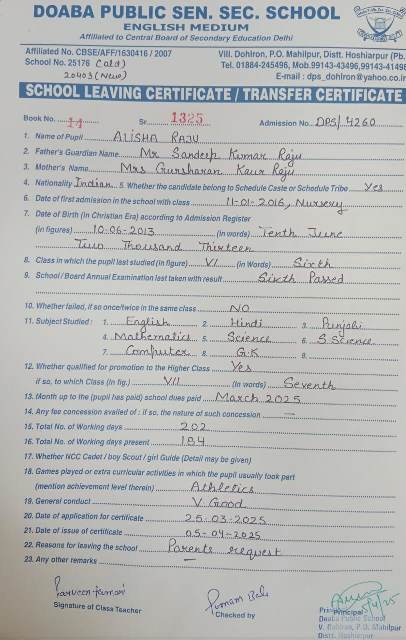 DOABA PUBLIC SEN. SEC. SCHOOL
ENGLISH MEDIUM
Affiliated to Central Board of Secondary Education Delhi
Affiliated No. CBSE/AFF/1630416 / 2007 Vill. Dohlron, P.O. Mahilpur, Distt. Hoshiarpur (Pb.
School No. 25176 (old) Tel. 01884-245496, Mob.99143-43496,99143-41496
20403 (New) E-mail : dps_dohlron@yahoo.co.in
SCHOOL LEAVING CERTIFICATE / TRANSFER CERTIFICATE
Book No. 14 Sr. 1325 Admission No. DPS/4260
1. Name of Pupil ALISHA RAJU
2. Father's Guardian Name Mr Sandeep Kumar Raju
3. Mother's Name Mrs Gursharan Kaur Raju
4. Nationality Indian 5. Whether the candidate belong to Schedule Caste or Schedule Tribe Yes
6. Date of first admission in the school with class 11-01-2016, Nursery
7. Date of Birth (in Christian Era) according to Admission Register
(in figures) 10-06-2013 (in words) Tenth June
Two Thousand Thirteen
8. Class in which the pupil last studied (in figure) VI (in Words) Sixth
9. School / Board Annual Examination last taken with result Sixth Passed
10. Whether failed, if so once/twice in the same class NO
11. Subject Studied : 1. English 2. Hindi 3. Punjabi
4. Mathematics 5. Science 6. S.Science
7. Computer 8. G.K 9.
12. Whether qualified for promotion to the Higher Class Yes
if so, to which Class (in fig.) VII (in words) Seventh
13. Month up to the (pupil has paid) school dues paid March 2025
14. Any fee concession availed of : if so, the nature of such concession —
15. Total No. of Working days 202
16. Total No. of Working days present 184
17. Whether NCC Cadet / boy Scout / girl Guide (Detail may be given)
18. Games played or extra curricular activities in which the pupil usually took part
(mention achievement level therein) Athletics
19. General conduct V. Good
20. Date of application for certificate 25-03-2025
21. Date of issue of certificate 05-04-2025
22. Reasons for leaving the school Parents request
23. Any other remarks —
Parveen Kumari Punam Bala 5/4/25
Signature of Class Teacher Checked by Principal
Doaba Public School
V. Dohlron, P.O. Mahilpur
Distt. Hoshiarpur